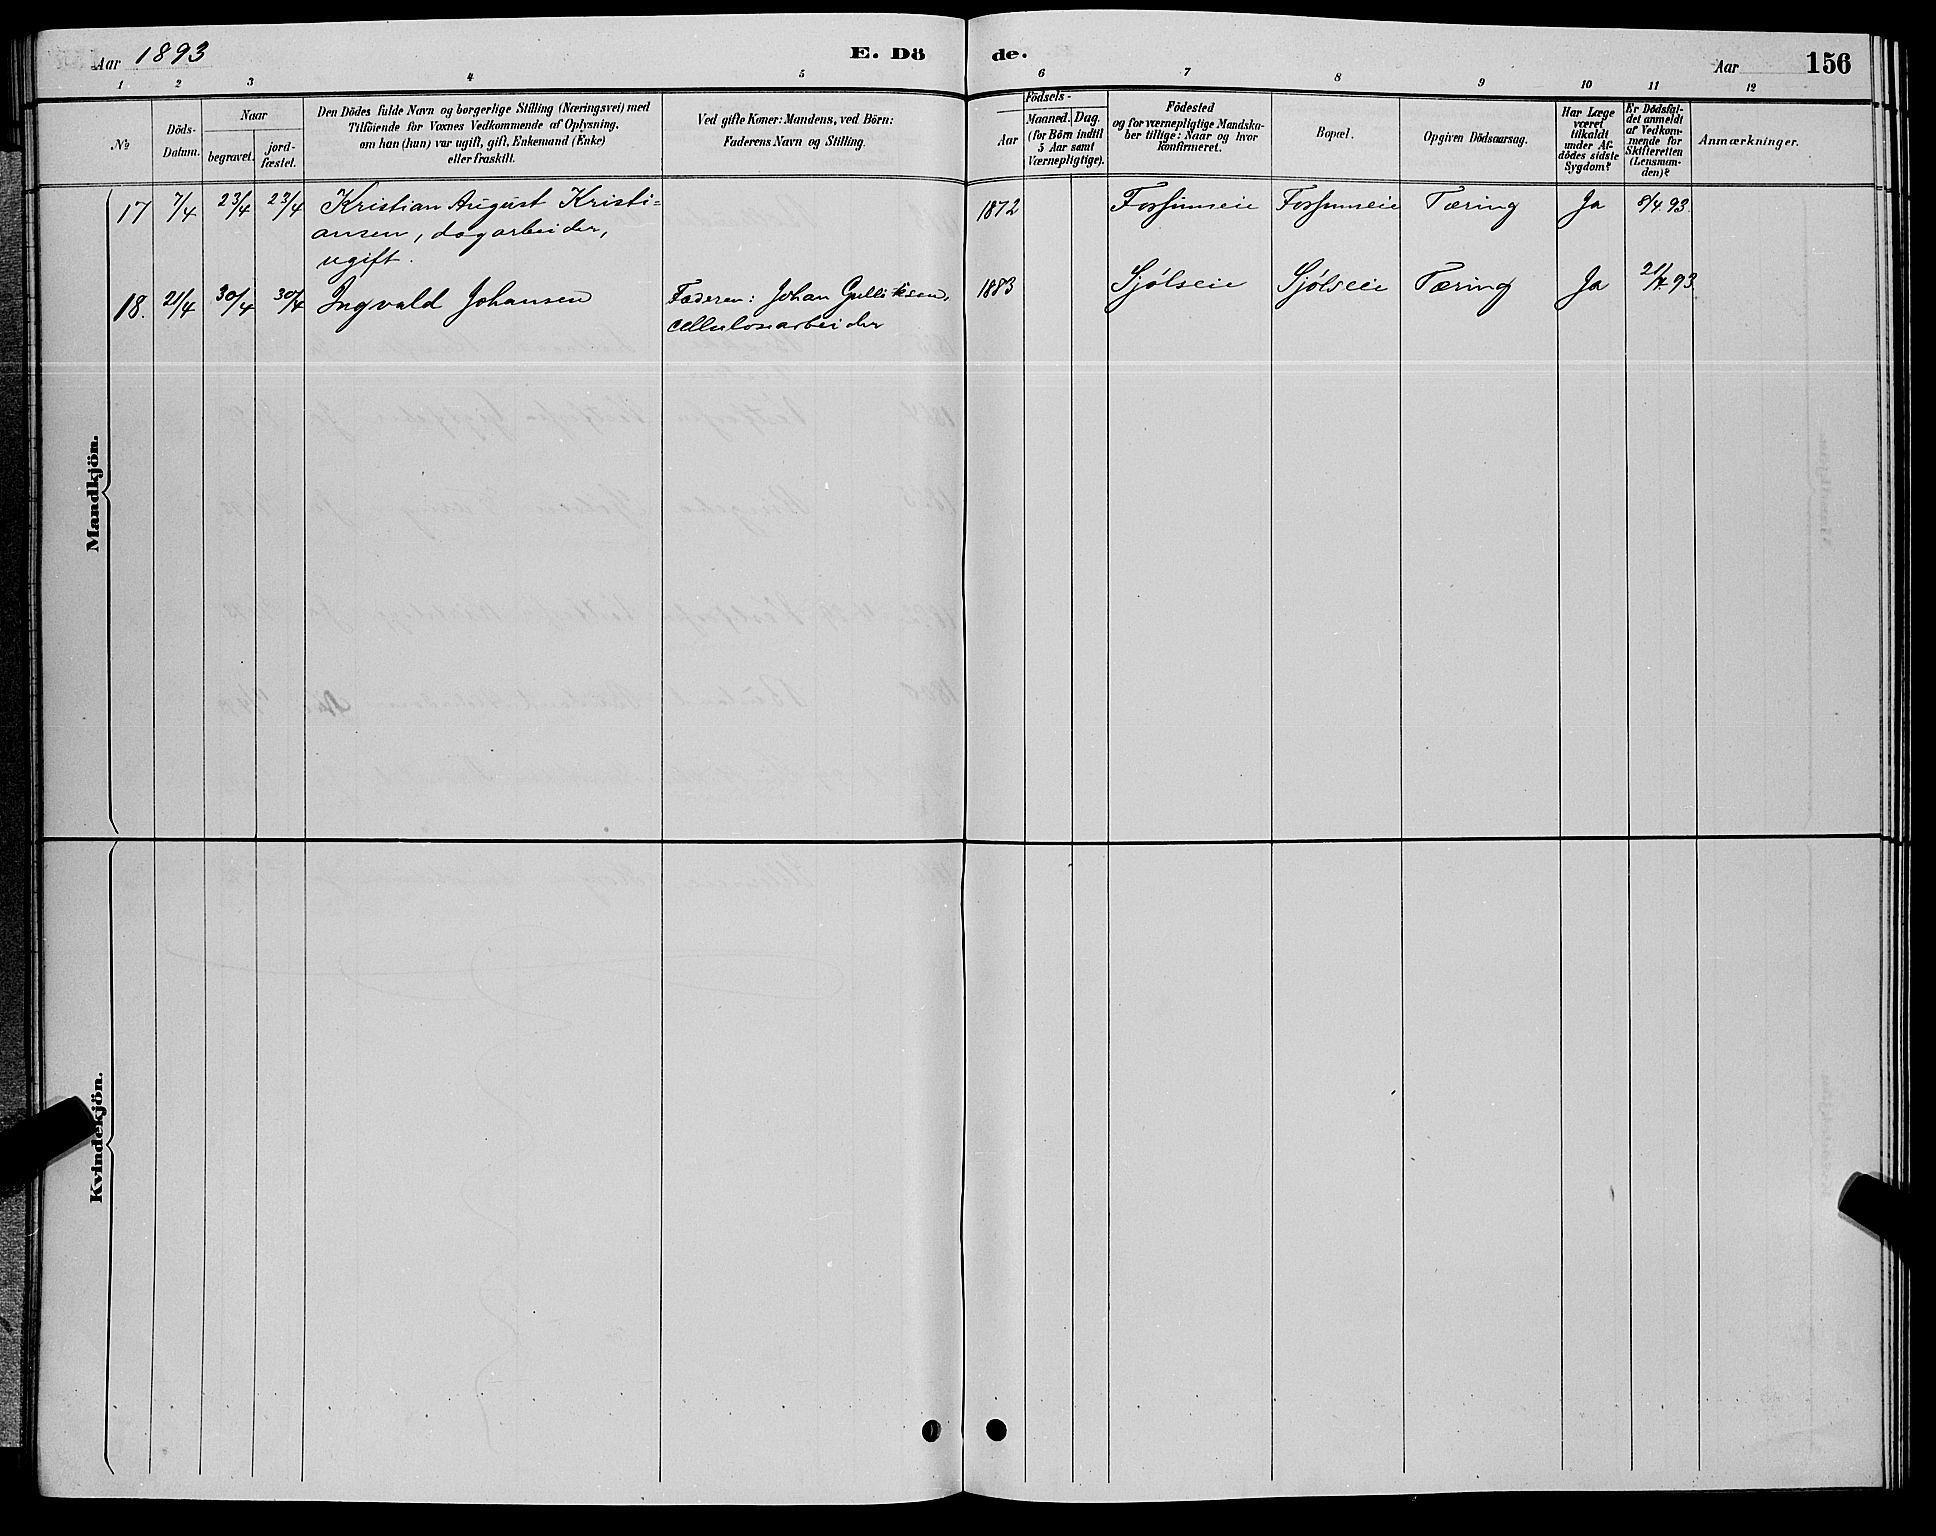 Aar 1893
E. Dö
de.
Aar 156
1 2 3 4 5 6 7 8 9 10 11 12
№
Döds-
Datum.
Naar
begravet.
jord-
fæstet.
Den Dödes fulde Navn og borgerlige Stilling (Næringsvei) med
Tilföiende for Voxnes Vedkommende af Oplysning,
om han (hun) var ugift, gift, Enkemand (Enke)
eller fraskilt.
Ved gifte Koner: Mandens, ved Börn:
Faderens Navn og Stilling.
Födsels-
Aar
Maaned. Dag.
(for Börn indtil
5 Aar samt
Værnepligtige).
Födested
og for værnepligtige Mandska-
ber tillige: Naar og hvor
konfirmeret.
Bopæl.
Opgiven Dödsaarsag.
Har Læge
været
tilkaldt
under Af-
dödes sidste
Sygdom?
Er Dödsfal-
det anmeldt
af Vedkom-
mende for
Skifteretten
(Lensman-
den)?
Anmærkninger.
Mandkjön.
17 7/4 23/4 23/4 Kristian August Kristi= 1872 Forsumseie Forsumseie Tæring Ja 8/4.93.
ansen, dagarbeider,
ugift.
18. 21/4 30/4 30/4 Ingvald Johansen Faderen: Johan Gulliksen, 1883 Sjølseie Sjølseie Tæring Ja 21/4.93
cellulosearbeider
Kvindekjön.